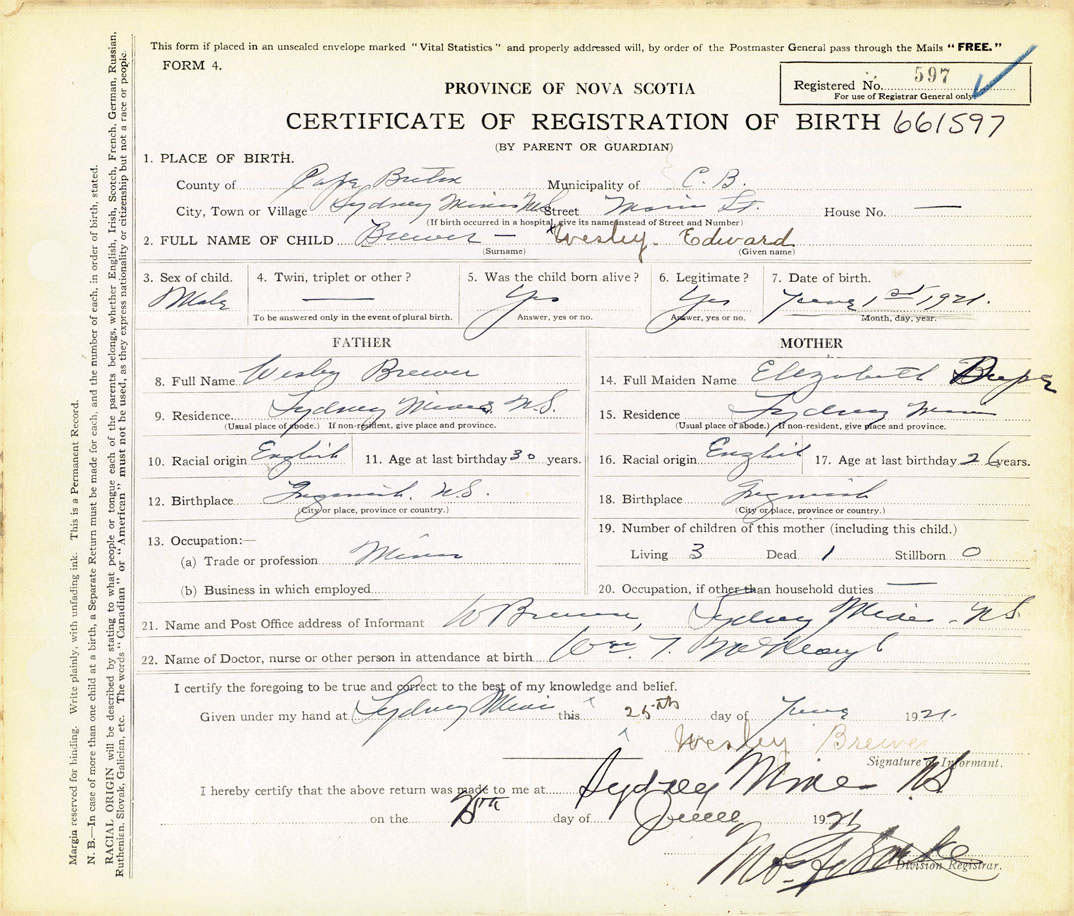 This form if placed in an unsealed envelope marked "Vital Statistics" and properly addressed will, by order of the Postmaster General pass through the Mails "FREE."
FORM 4.
Registered No. 597
For use of Registrar General only
PROVINCE OF NOVA SCOTIA
CERTIFICATE OF REGISTRATION OF BIRTH 661597
(BY PARENT OR GUARDIAN)
1. PLACE OF BIRTH.
County of Cape Breton Municipality of C. B.
City, Town or Village Sydney Mines NS Street Main St. House No. —
(If birth occurred in a hospital, give its name instead of Street and Number)
2. FULL NAME OF CHILD Brewer — Wesley Edward
(Surname) (Given name)
3. Sex of child. 4. Twin, triplet or other? 5. Was the child born alive? 6. Legitimate? 7. Date of birth.
Male — Yes Yes June 1st 1921.
To be answered only in the event of plural birth. Answer, yes or no. Answer, yes or no. Month, day, year.
FATHER
8. Full Name Wesley Brewer
9. Residence Sydney Mines N.S.
(Usual place of abode.) If non-resident, give place and province.
10. Racial origin English 11. Age at last birthday 30 years.
12. Birthplace N.S.
(City or place, province or country.)
13. Occupation:—
(a) Trade or profession Miner
(b) Business in which employed
MOTHER
14. Full Maiden Name Elizabeth
15. Residence Sydney Mines
(Usual place of abode.) If non-resident, give place and province.
16. Racial origin English 17. Age at last birthday 26 years.
18. Birthplace
(City or place, province or country.)
19. Number of children of this mother (including this child.)
Living 3 Dead 1 Stillborn 0
20. Occupation, if other than household duties —
21. Name and Post Office address of Informant W Brewer, Sydney Mines N.S
22. Name of Doctor, nurse or other person in attendance at birth Wm. T.
I certify the foregoing to be true and correct to the best of my knowledge and belief.
Given under my hand at Sydney Mines this 25th day of June 1921.
Wesley Brewer
Signature of Informant.
I hereby certify that the above return was made to me at Sydney Mines NS
on the 25th day of June 1921
Division Registrar.
Margia reserved for binding. Write plainly, with unfading ink. This is a Permanent Record.
N. B.—In case of more than one child at a birth, a Separate Return must be made for each, and the number of each, in order of birth, stated.
RACIAL ORIGIN will be described by stating to what people or tongue each of the parents belongs, whether English, Irish, Scotch, French, German, Russian,
Ruthenian, Slovak, Galician, etc. The words "Canadian" or "American" must not be used, as they express nationality or citizenship but not a race or people.